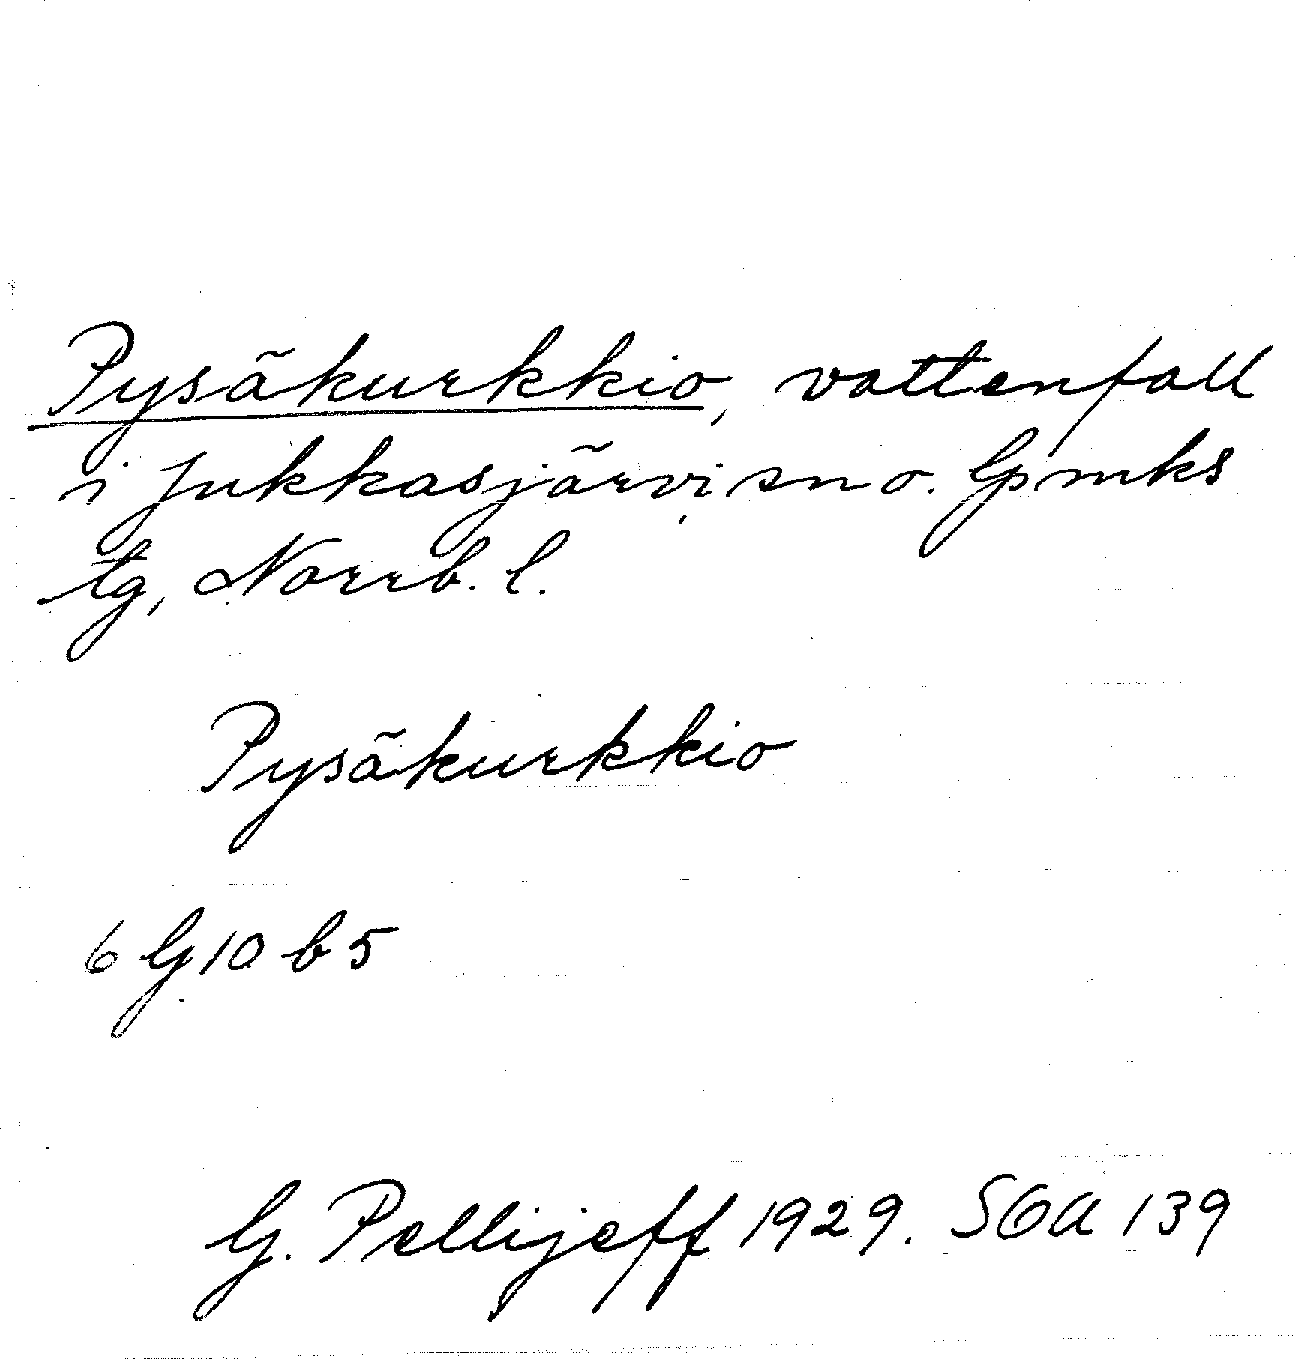 Pysäkurkkio, vattenfall
i Jukkasjärvi sn o. Gpmks
tg, Norrb. l.
Pysäkurkkio
6 G 10 b 5
G. Pellijeff 1929. SOA 139